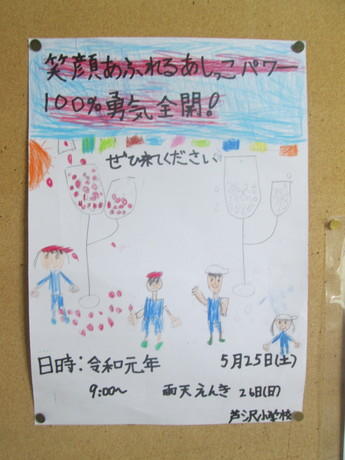 笑顔あふれるあしっこパワー
100%勇気全開!
ぜひ来てください
日時:令和元年 5月25日(土)
9:00~ 雨天えんき 26日(日)
芦沢小学校